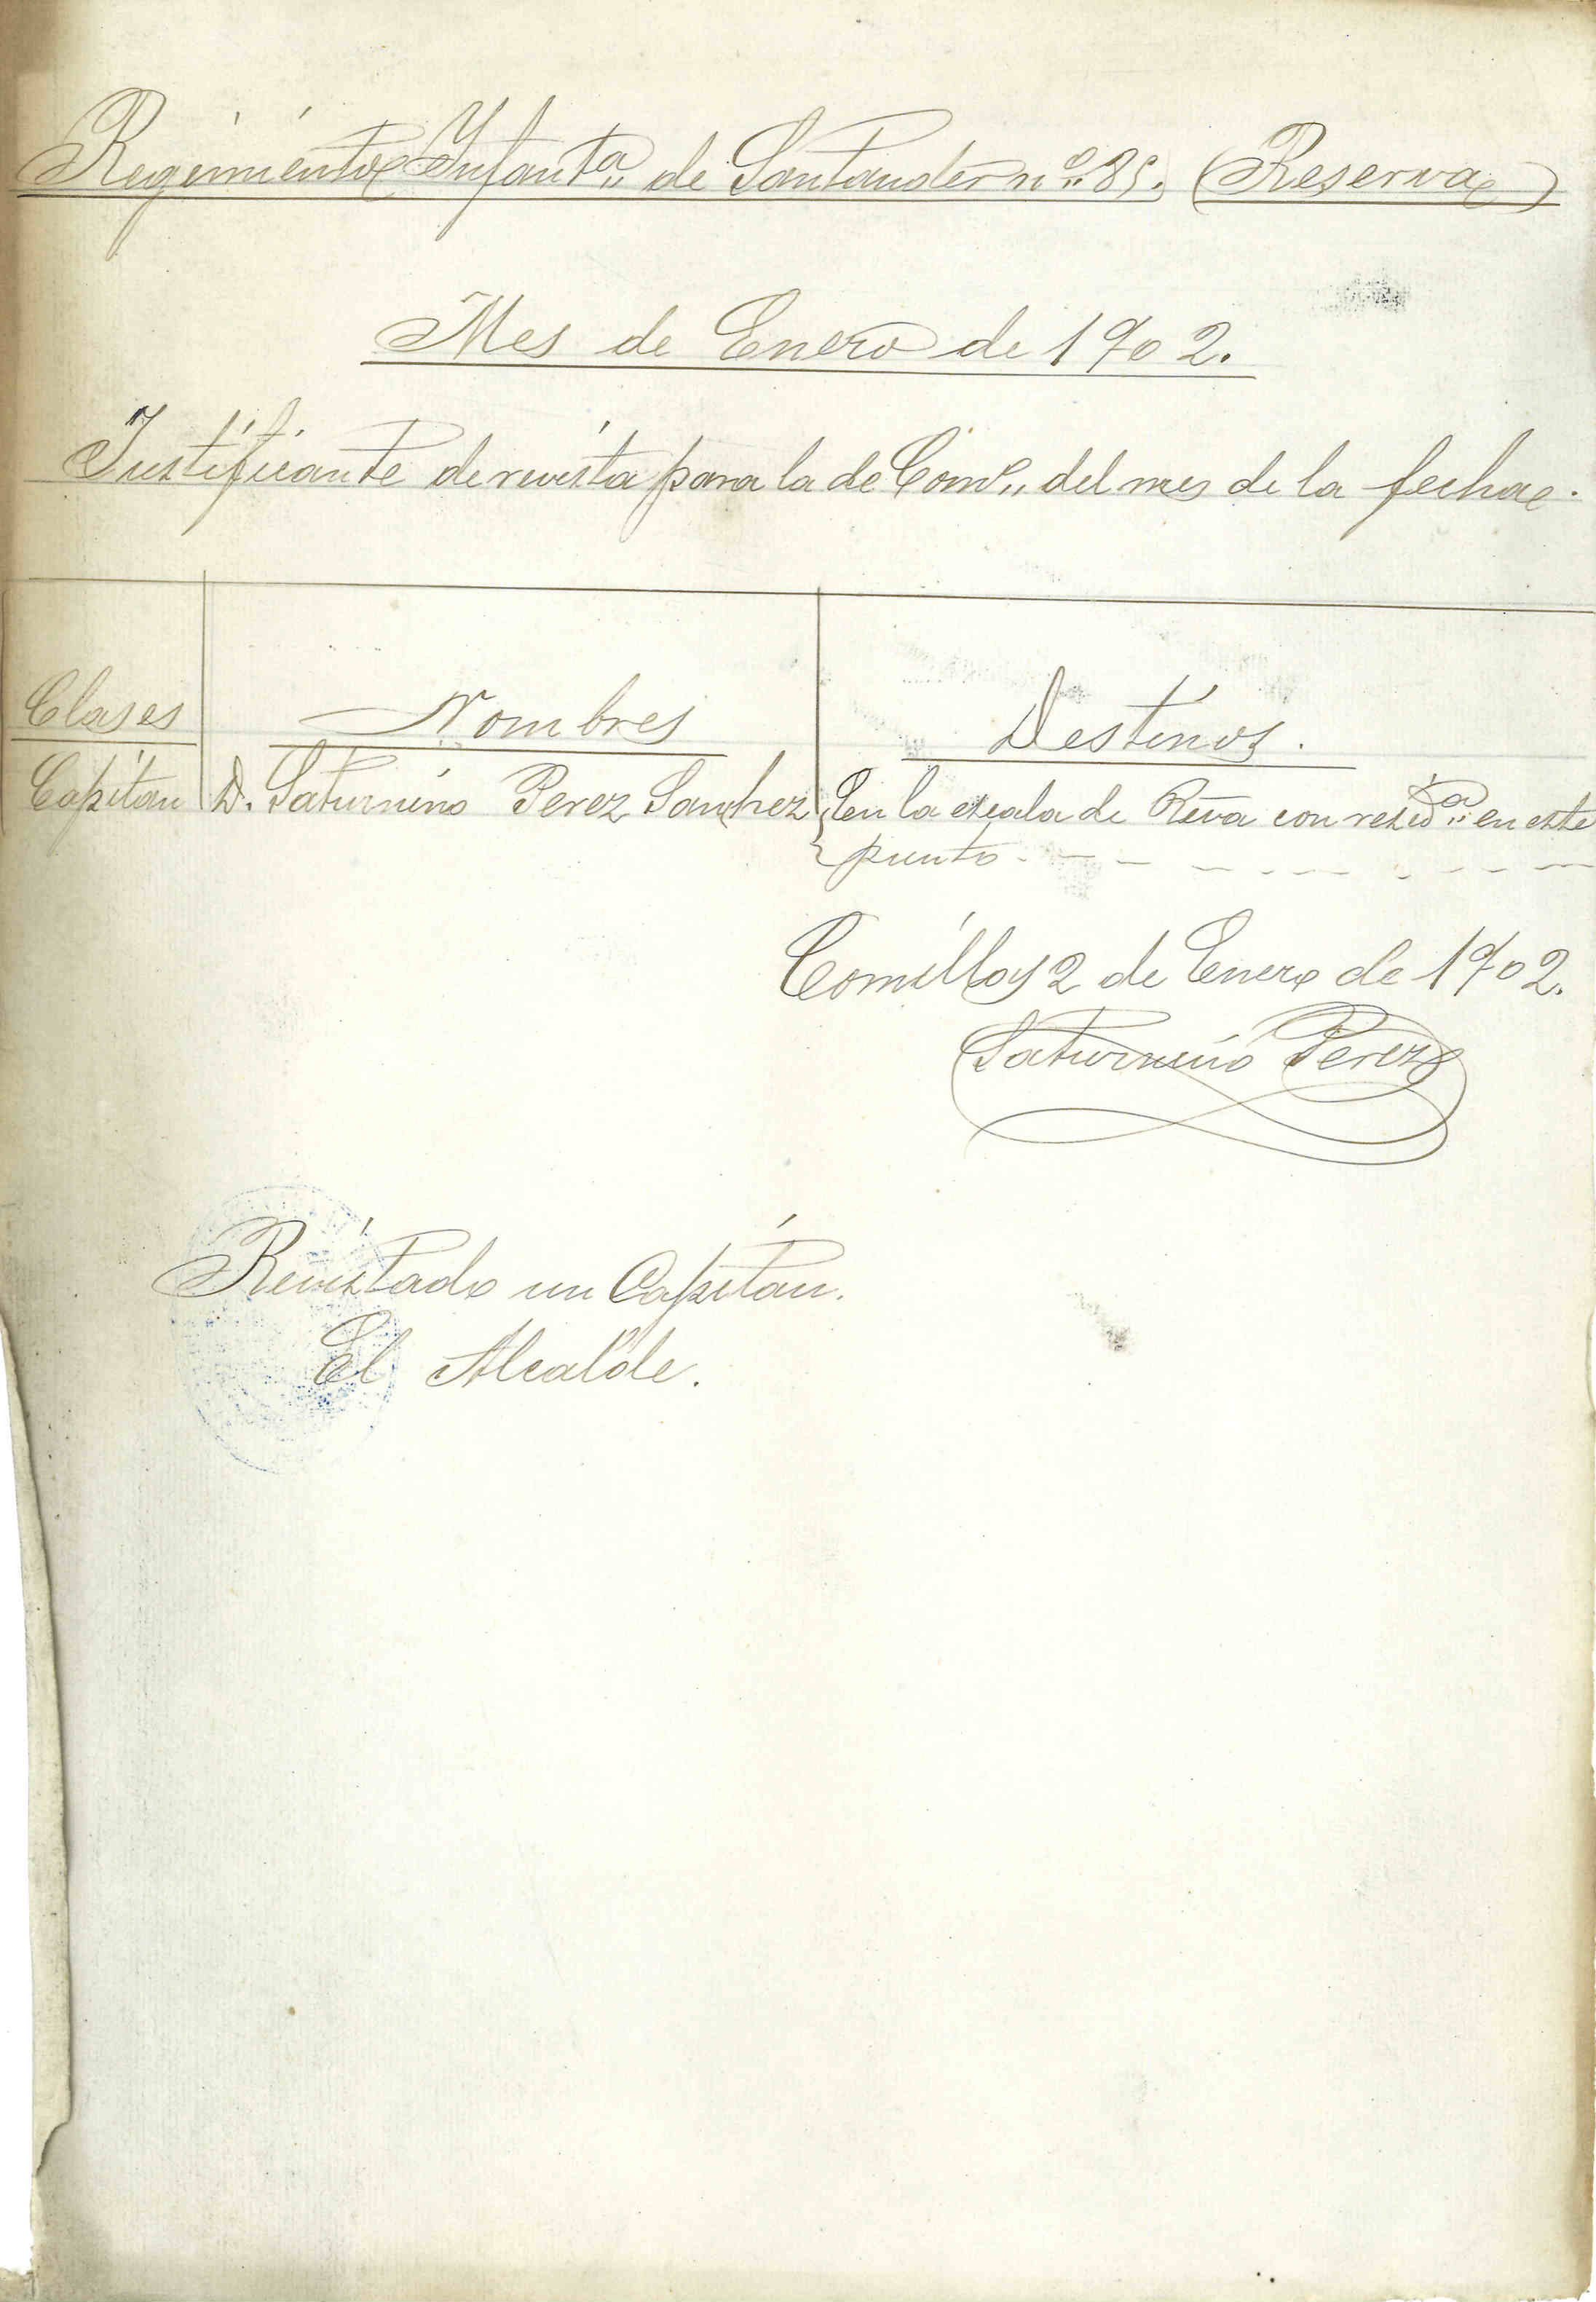 Regimiento Ynfant.ª de Santander n.º 85. (Reserva)
Mes de Enero de 1902.
Justificante de revista para la de Com.º del mes de la fecha.
Clases Nombres Destinos.
Capitan D. Saturnino Perez Sanchez En la escala de Rvª con resid.ª en este
punto.
Comillas 2 de Enero de 1902.
Saturnino Perez
Revistado un Capitan.
El Alcalde.